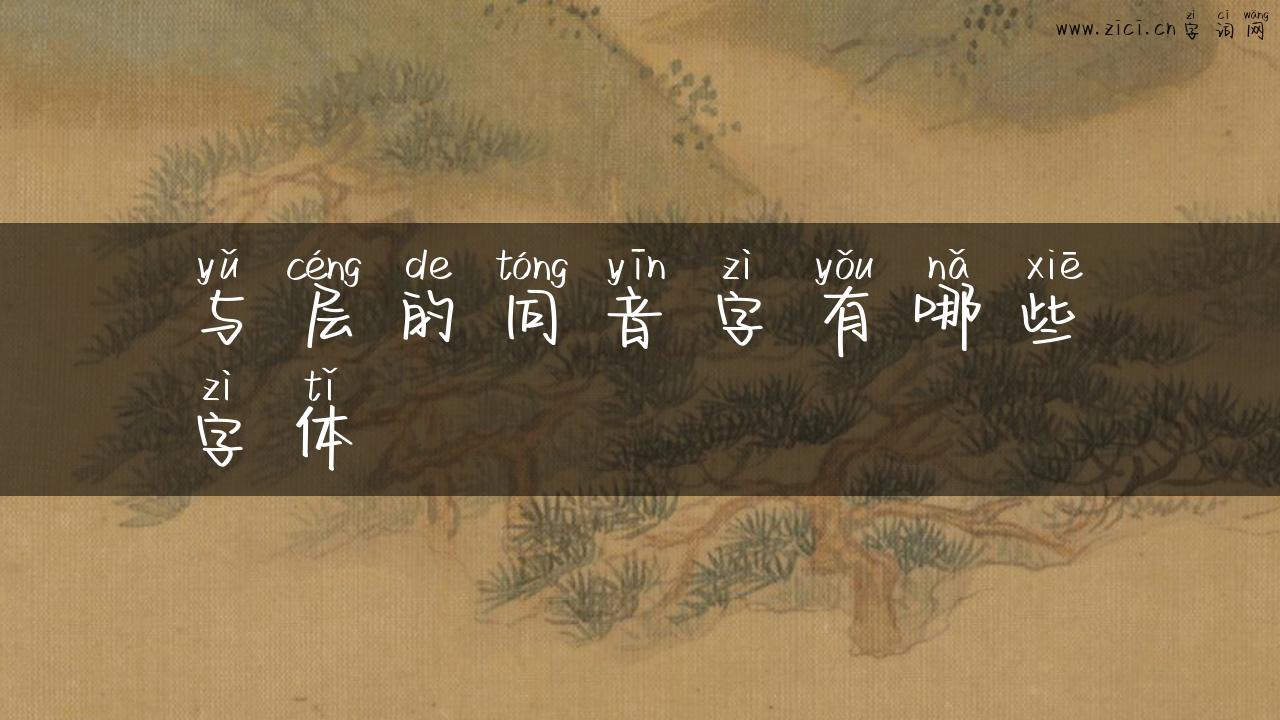 zì cí wǎng
www.zici.cn 字词网
yǔ céng de tóng yīn zì yǒu nǎ xiē
与层的同音字有哪些
zì tǐ
字体